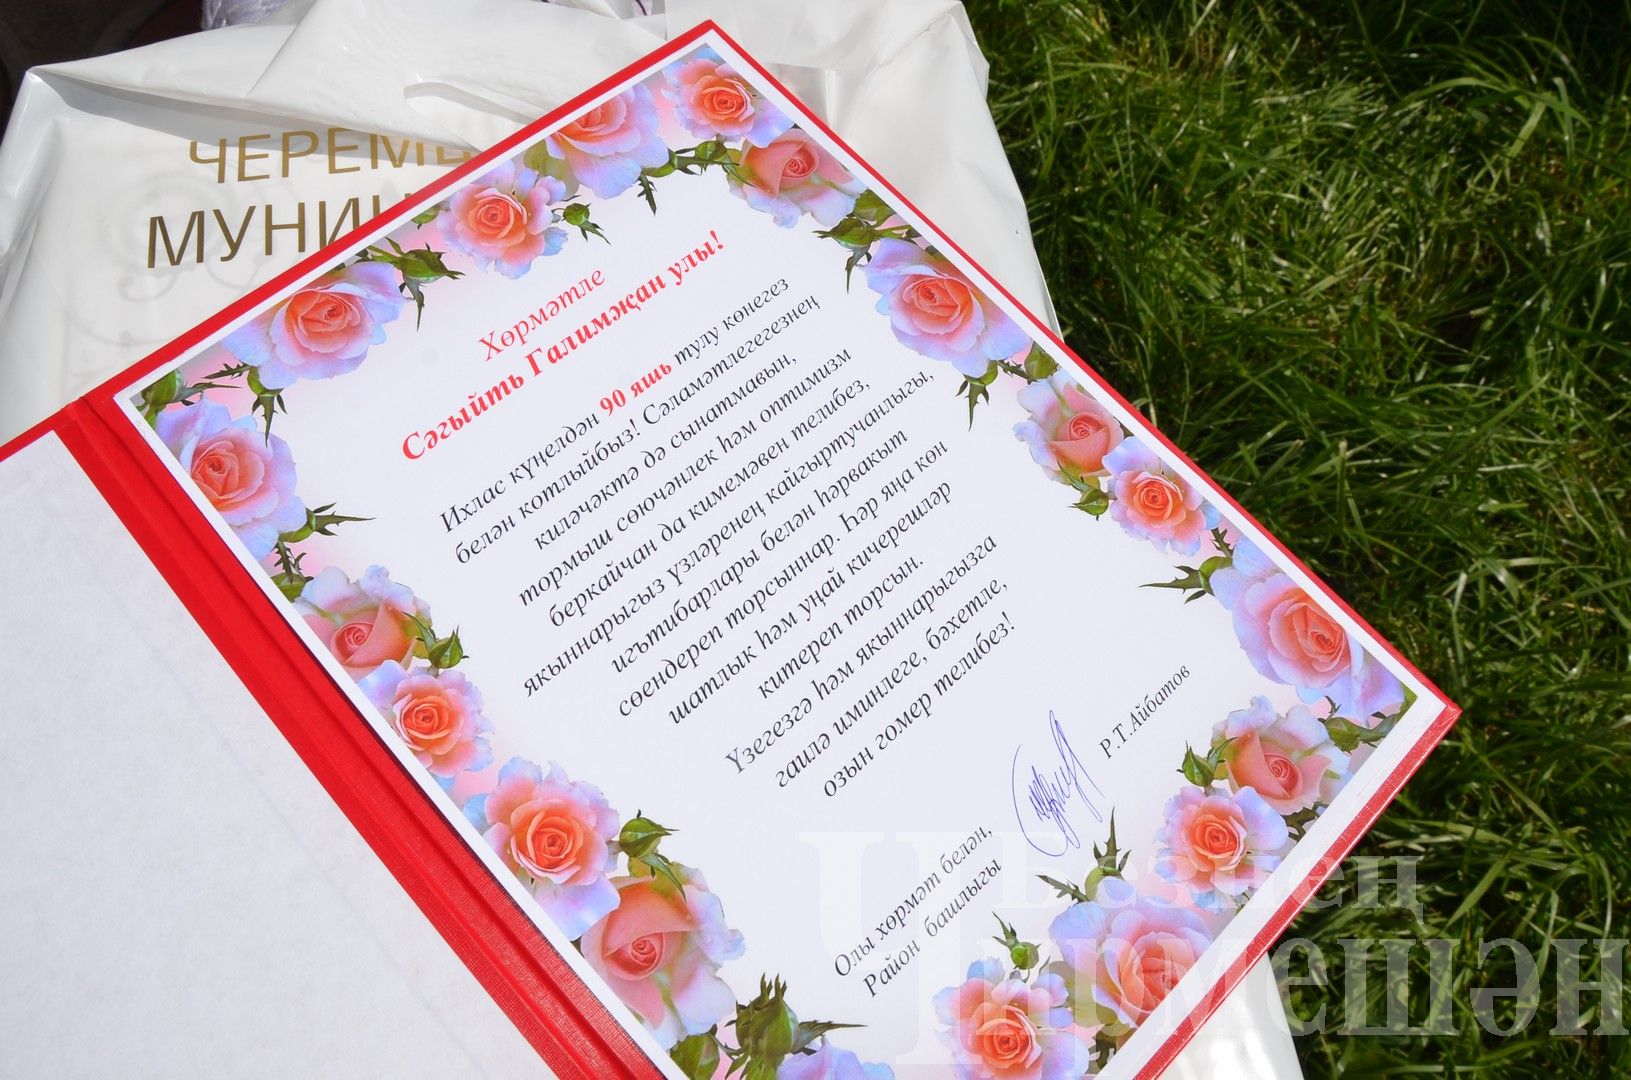 ЧЕРЕМ
МУНИ
Хөрмәтле
Сәгыйть Галимҗан улы!
Ихлас күңелдән 90 яшь тулу көнегез
белән котлыйбыз! Сәламәтлегегезнең
киләчәктә дә сынатмавын,
тормыш сөючәнлек һәм оптимизм
беркайчан да кимемәвен телибез,
якыннарыгыз үзләренең кайгыртучанлыгы,
игътибарлары белән һәрвакыт
сөендереп торсыннар. Һәр яңа көн
шатлык һәм уңай кичерешләр
китереп торсын.
Үзегезгә һәм якыннарыгызга
гаилә иминлеге, бәхетле,
озын гомер телибез!
Олы хөрмәт белән,
Район башлыгы Р.Т.Айбатов
Безнең
Чирмешән